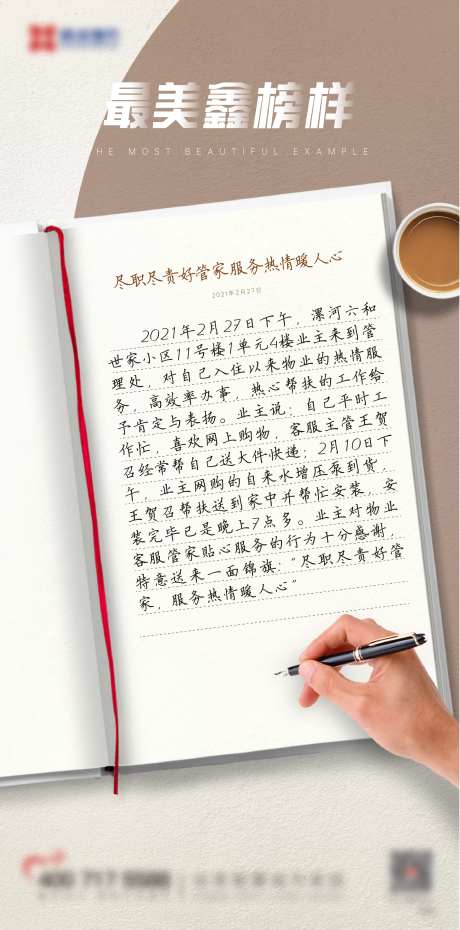 最美鑫榜样
THE MOST BEAUTIFUL EXAMPLE
尽职尽责好管家服务热情暖人心
2021年2月27日
2021年2月27日下午，漯河六和
世家小区11号楼1单元4楼业主来到管
理处，对自己入住以来物业的热情服
务，高效率办事，热心帮扶的工作给
予肯定与表扬。业主说：自己平时工
作忙，喜欢网上购物，客服主管王贺
召经常帮自己送大件快递；2月10日下
午，业主网购的自来水增压泵到货，
王贺召帮扶送到家中并帮忙安装，安
装完毕已是晚上7点多。业主对物业
客服管家贴心服务的行为十分感谢，
特意送来一面锦旗：“尽职尽责好管
家，服务热情暖人心”